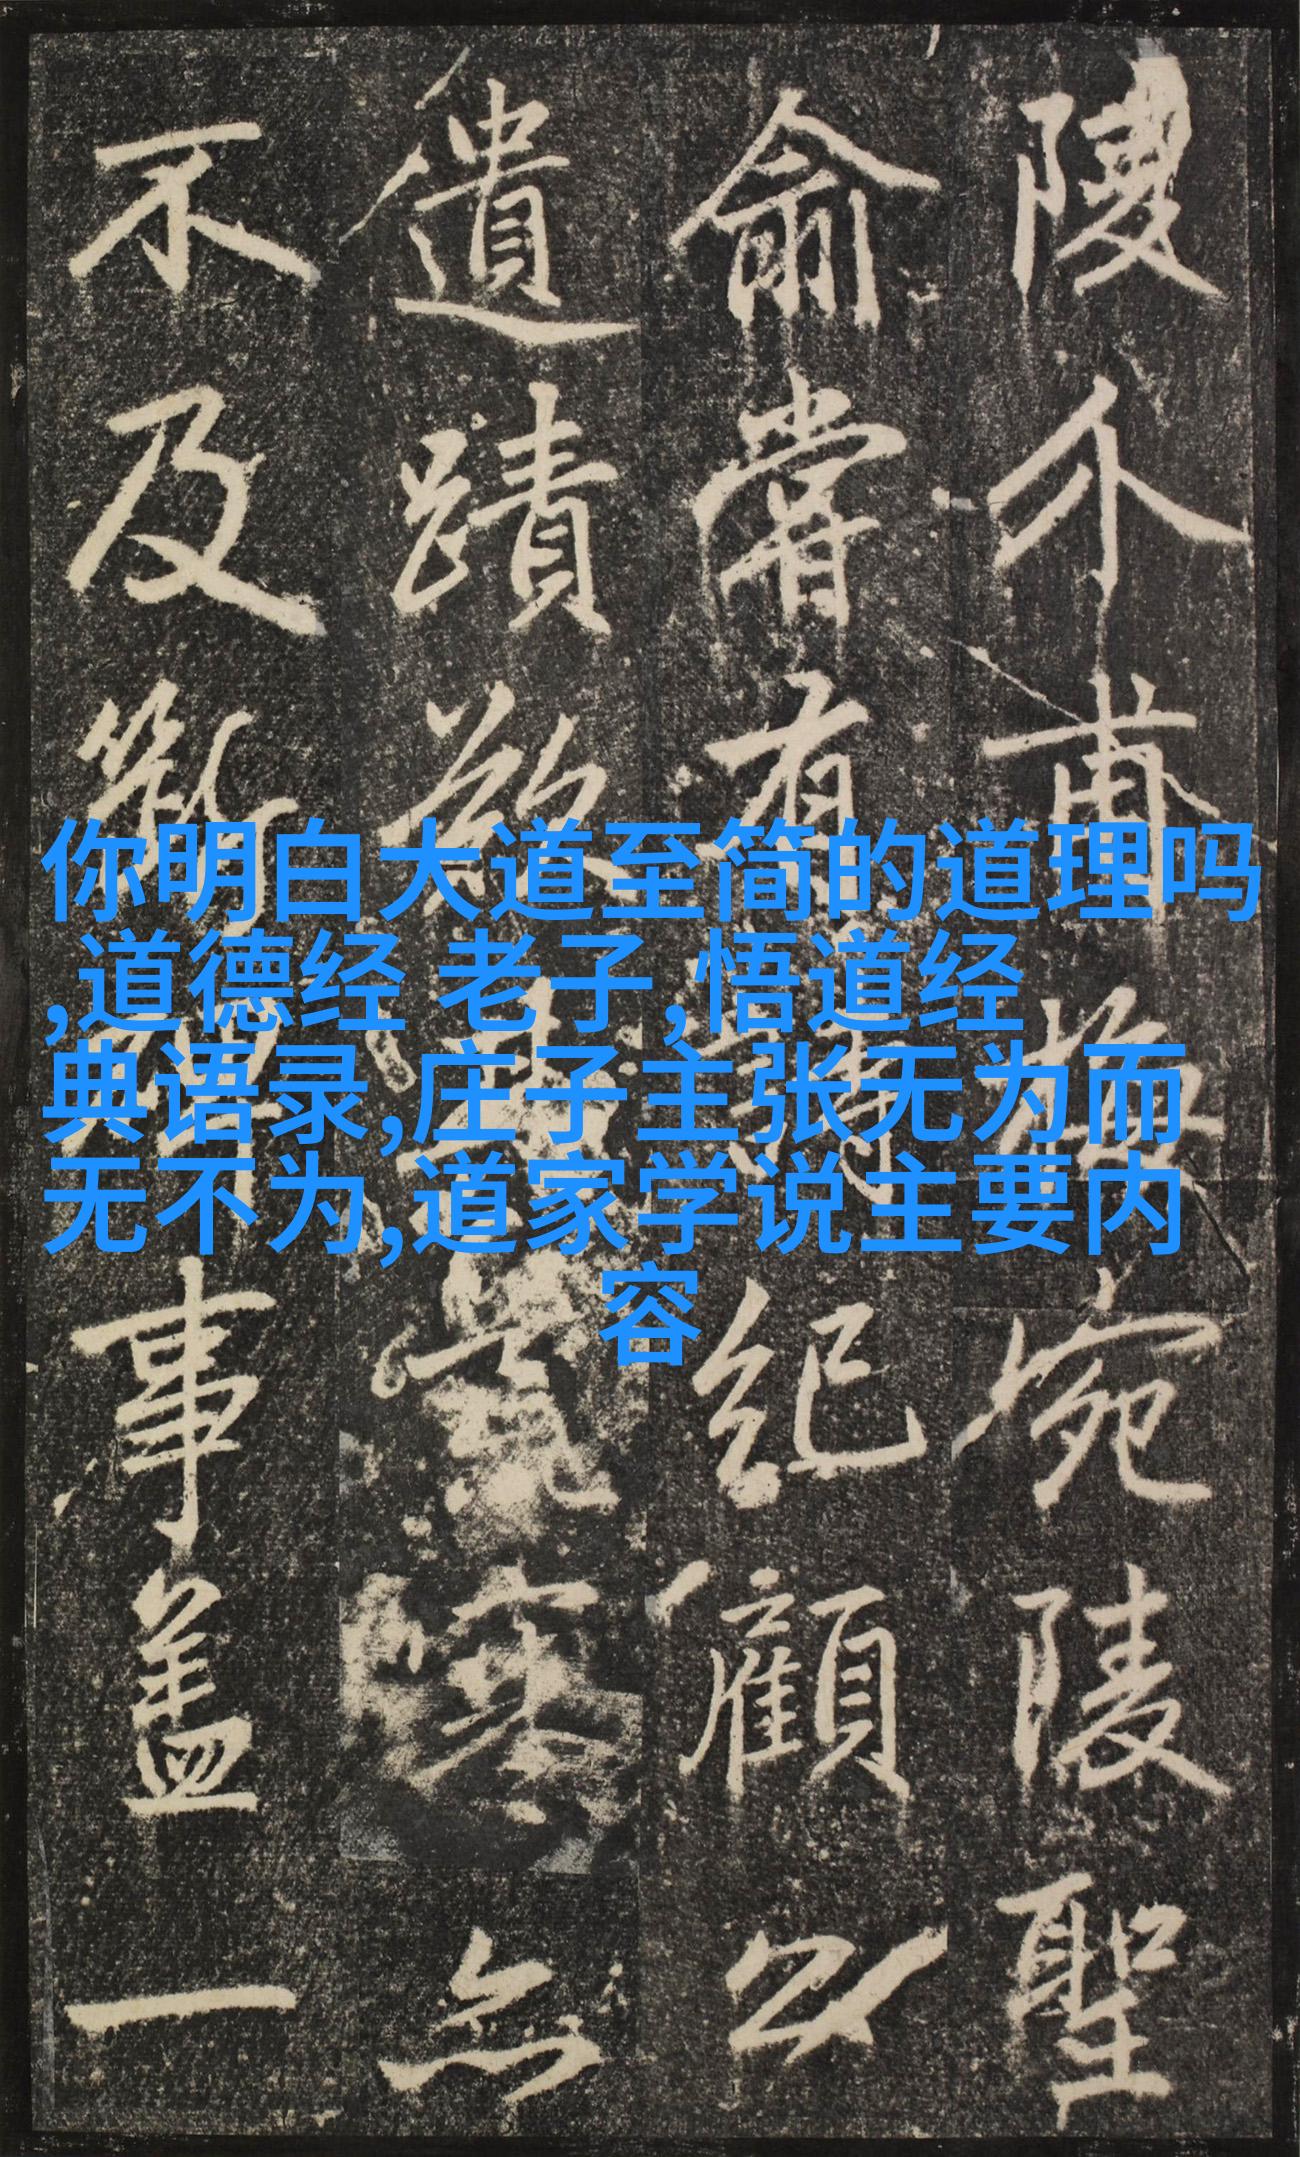 你明白大道至简的道理吗
,道德经 老子,悟道经
典语录,庄子主张无为而
无不为,道家学说主要内
容
陵介甫梅宛陵聖
俞常有紀顧以
遺蹟欲寒無
不及斷事蓋一